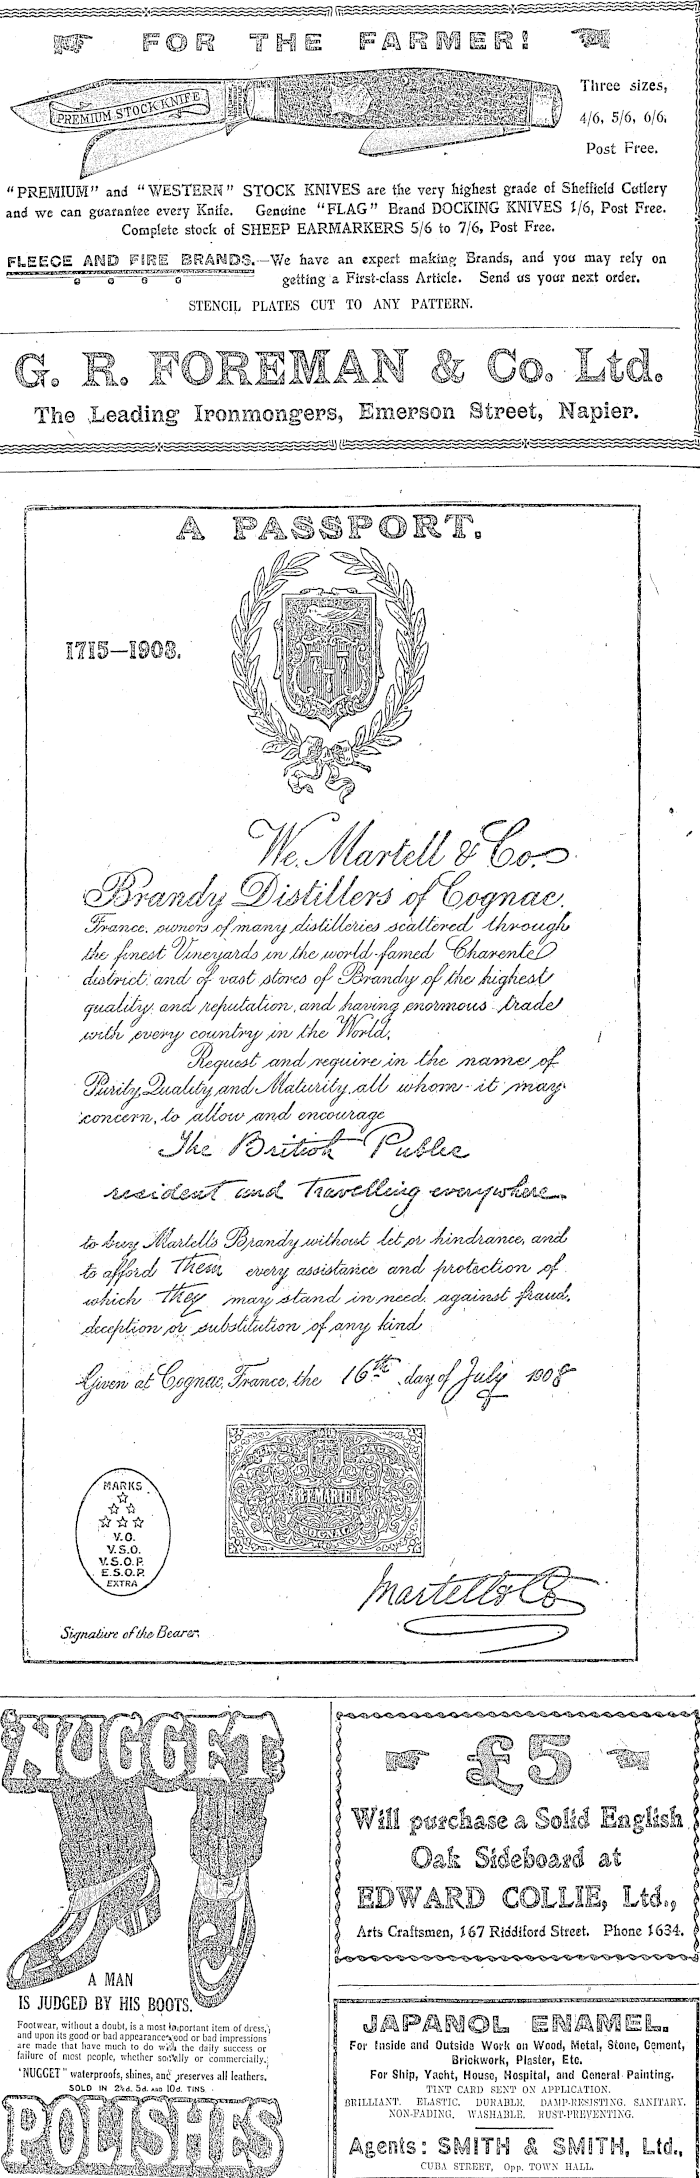 FOR THE FARMER!
PREMIUM STOCK KNIFE
Three sizes,
4/6, 5/6, 6/6,
Post Free.
"PREMIUM" and "WESTERN" STOCK KNIVES are the very highest grade of Sheffield Cutlery
and we can guarantee every Knife. Genuine "FLAG" Brand DOCKING KNIVES 1/6, Post Free.
Complete stock of SHEEP EARMARKERS 5/6 to 7/6, Post Free.
FLEECE AND FIRE BRANDS.—We have an expert making Brands, and you may rely on
getting a First-class Article. Send us your next order.
STENCIL PLATES CUT TO ANY PATTERN.
G. R. FOREMAN & Co. Ltd.
The Leading Ironmongers, Emerson Street, Napier.
A PASSPORT.
1715—1908.
We, Martell & Co.
Brandy Distillers of Cognac,
France, owners of many distilleries scattered through
the finest Vineyards in the world-famed Charente
district, and of vast stores of Brandy of the highest
quality and reputation, and having enormous trade
with every country in the World,
Request and require in the name of
Purity, Quality, and Maturity, all whom it may
concern, to allow and encourage
The British Public
resident and Travelling everywhere
to buy Martell's Brandy without let or hindrance, and
to afford them every assistance and protection of
which they may stand in need, against fraud,
deception or substitution of any kind
Given at Cognac, France, the 16th day of July 1908
MARKS
V.O.
V.S.O.
V.S.O.P.
E.S.O.P.
EXTRA
J. & F. MARTELL
COGNAC
Martell & Co
Signature of the Bearer.
NUGGET
A MAN
IS JUDGED BY HIS BOOTS.
Footwear, without a doubt, is a most important item of dress,
and upon its good or bad appearance good or bad impressions
are made that have much to do with the daily success or
failure of most people, whether socially or commercially.
"NUGGET" waterproofs, shines, and preserves all leathers.
SOLD IN 2½d. 5d. AND 10d. TINS
POLISHES
£5
Will purchase a Solid English
Oak Sideboard at
EDWARD COLLIE, Ltd.,
Arts Craftsmen, 167 Riddiford Street. Phone 1634.
JAPANOL ENAMEL.
For Inside and Outside Work on Wood, Metal, Stone, Cement,
Brickwork, Plaster, Etc.
For Ship, Yacht, House, Hospital, and General Painting.
TINT CARD SENT ON APPLICATION.
BRILLIANT. ELASTIC. DURABLE. DAMP-RESISTING. SANITARY.
NON-FADING. WASHABLE. RUST-PREVENTING.
Agents: SMITH & SMITH, Ltd.,
CUBA STREET, Opp. TOWN HALL.